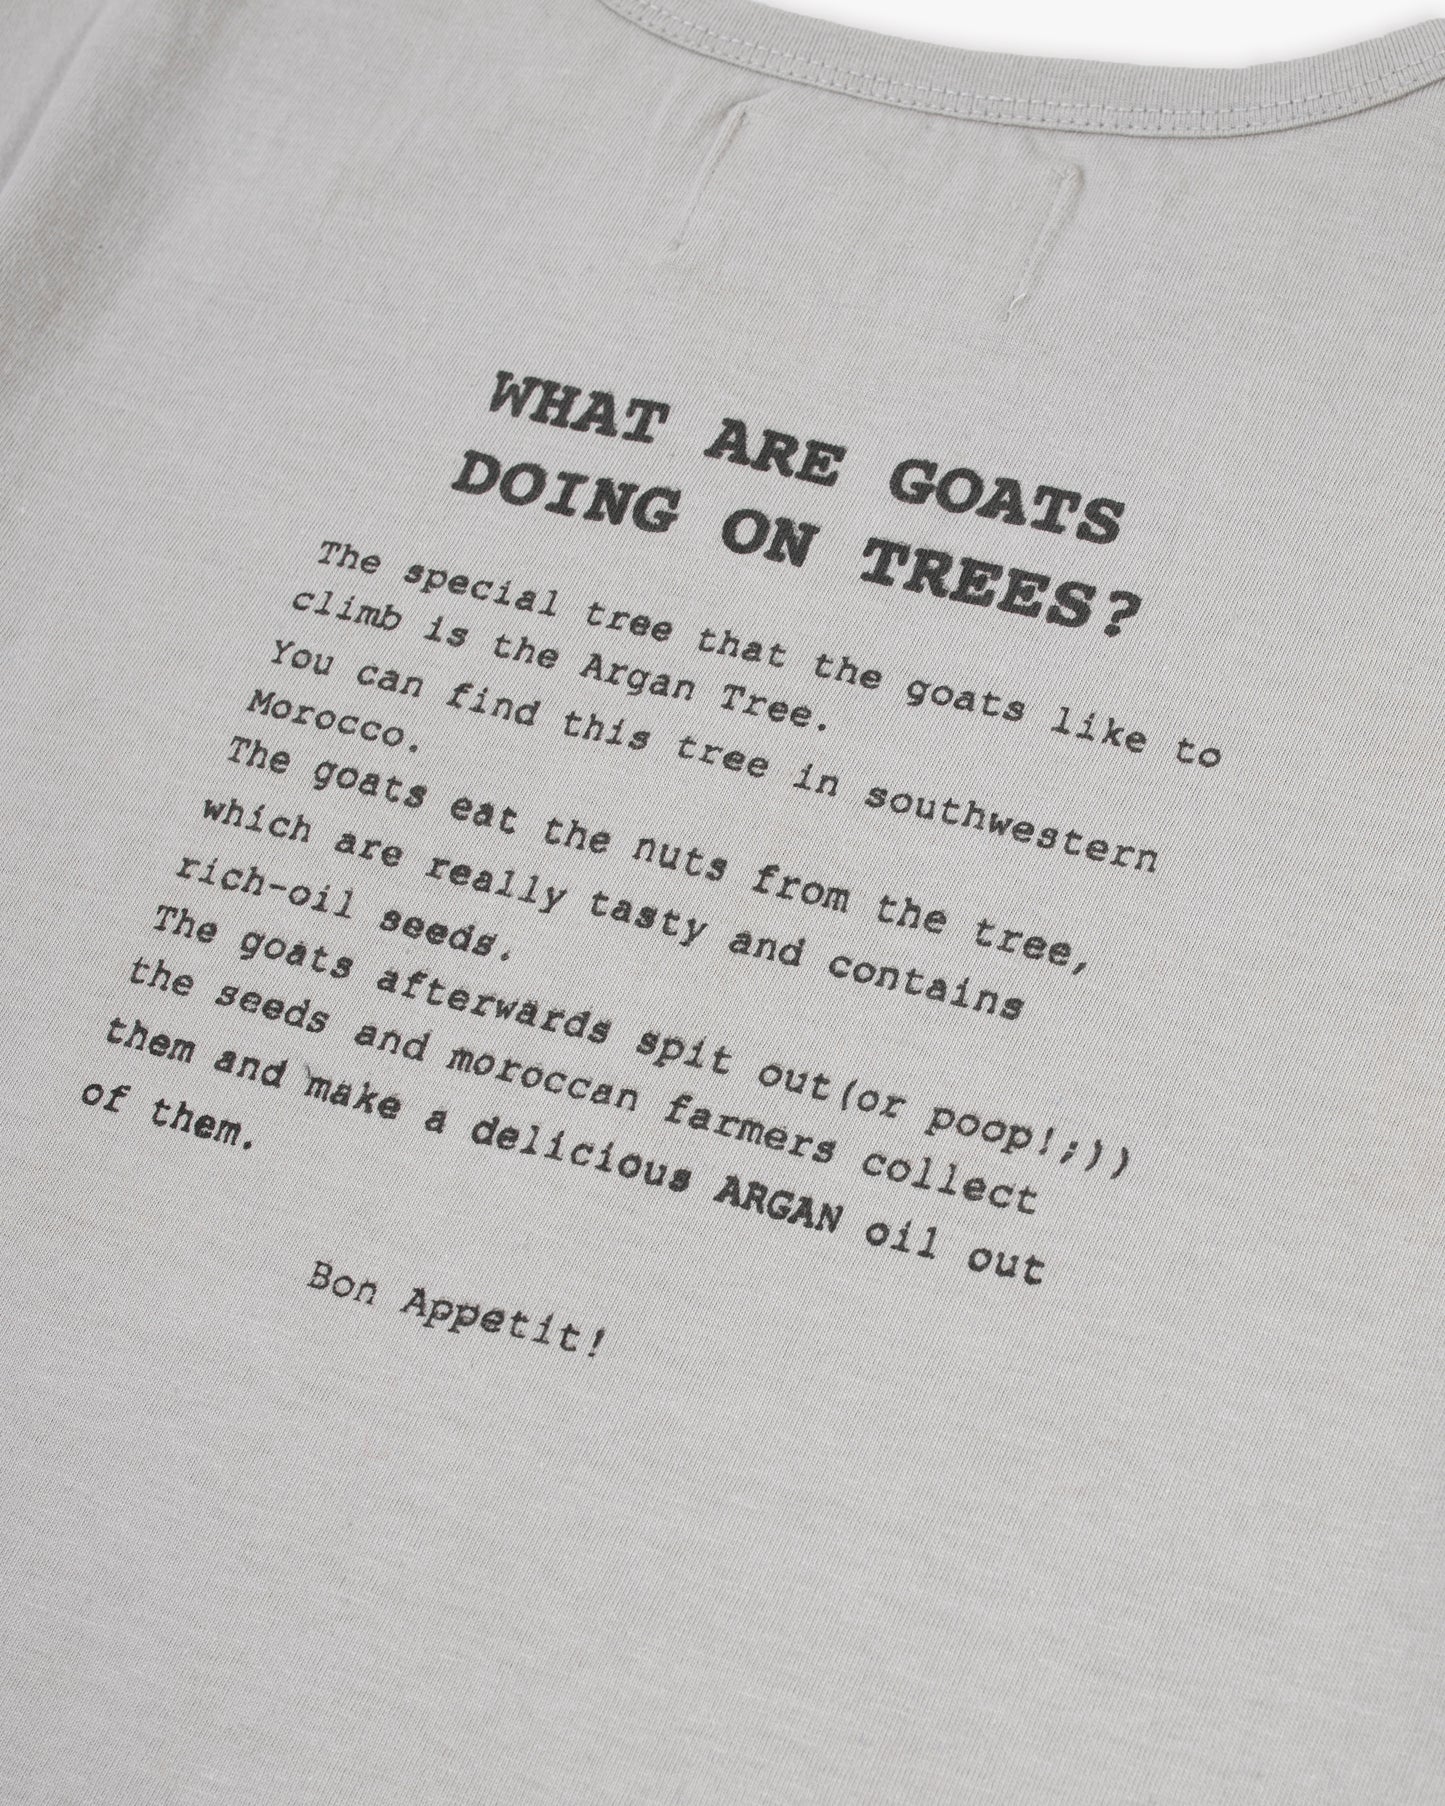 WHAT ARE GOATS
DOING ON TREES?
The special tree that the goats like to
climb is the Argan Tree.
You can find this tree in southwestern
Morocco.
The goats eat the nuts from the tree,
which are really tasty and contains
rich-oil seeds.
The goats afterwards spit out(or poop!;))
the seeds and moroccan farmers collect
them and make a delicious ARGAN oil out
of them.
Bon Appetit!